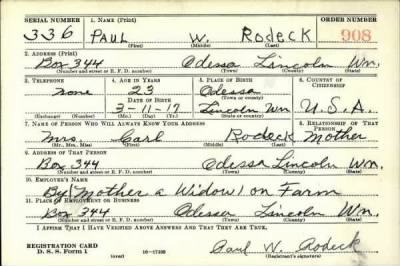 SERIAL NUMBER 1. NAME (Print) ORDER NUMBER
336 PAUL W. Rodeck 908
(First) (Middle) (Last)
2. ADDRESS (Print)
Box 344 Odessa Lincoln Wn.
(Number and street or R. F. D. number) (Town) (County) (State)
3. TELEPHONE 4. AGE IN YEARS 5. PLACE OF BIRTH 6. COUNTRY OF CITIZENSHIP
none 23 Odessa
DATE OF BIRTH (Town or county)
3-11-17 Lincoln Wn U.S.A.
(Exchange) (Number) (Mo.) (Day) (Yr.) (State or country)
7. NAME OF PERSON WHO WILL ALWAYS KNOW YOUR ADDRESS 8. RELATIONSHIP OF THAT PERSON
Mrs. Carl Rodeck Mother
(Mr., Mrs., Miss) (First) (Middle) (Last)
9. ADDRESS OF THAT PERSON
Box 344 Odessa Lincoln Wn.
(Number and street or R. F. D. number) (Town) (County) (State)
10. EMPLOYER'S NAME
By Mother a Widow on Farm
11. PLACE OF EMPLOYMENT OR BUSINESS
Box 344 Odessa Lincoln Wn.
(Number and street or R. F. D. number) (Town) (County) (State)
I AFFIRM THAT I HAVE VERIFIED ABOVE ANSWERS AND THAT THEY ARE TRUE.
REGISTRATION CARD
D. S. S. Form 1 (over) Paul W. Rodeck
(Registrant's signature)